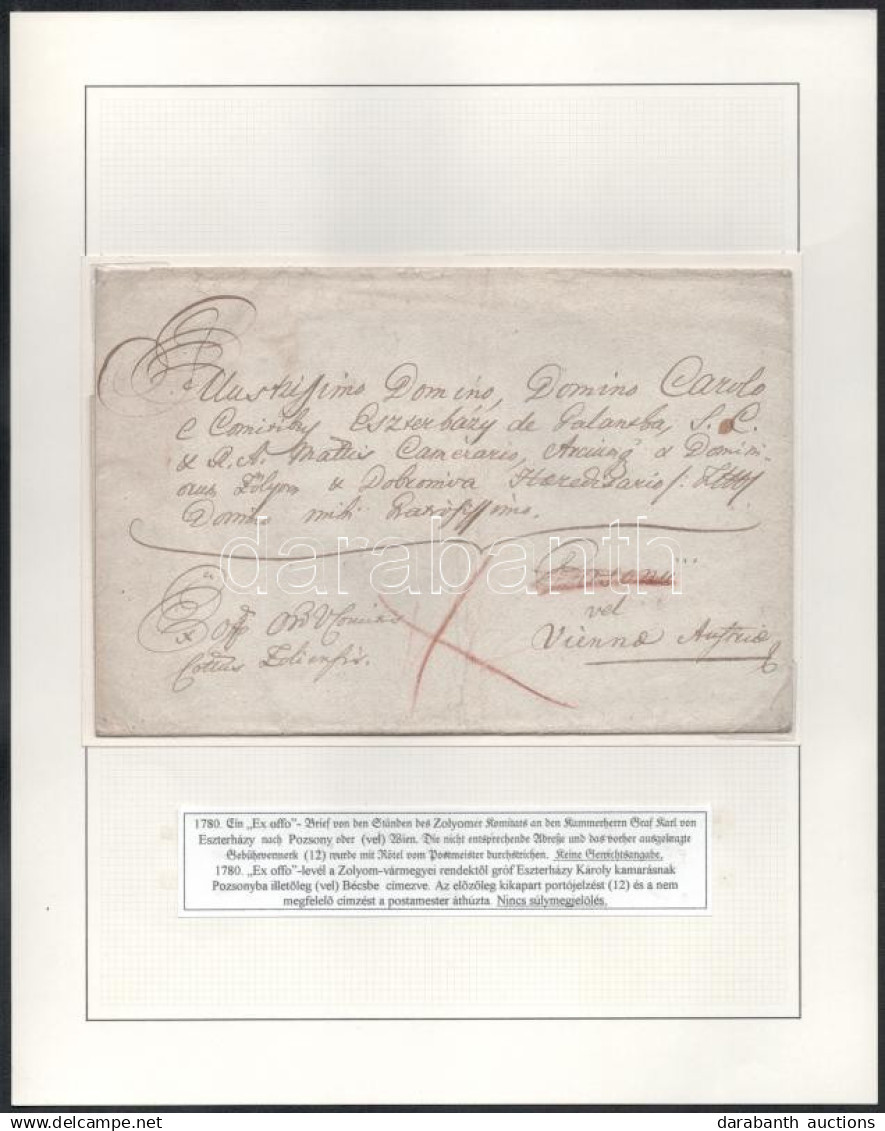 Illustrissimo Domino, Domino Carolo
e Comitibus Eszterházy de Galantha, S. C.
& R. A. Mattis Camerario, Arcium & Domini-
orum Zólyom & Dobroniva Haereditario
Domino mihi Gratiosissimo.
Posonii
vel
Viennae Austriae
Ex offo
Cottus Zoliensis.
darabanth
1780. Ein „Ex offo"- Brief von den Ständen des Zolyomer Komitats an den Kammerherrn Graf Karl von
Eszterházy nach Pozsony oder (vel) Wien. Die nicht entsprechende Adreße und das vorher ausgekratzte
Gebührvermerk (12) wurde mit Rötel vom Postmeister durchstrichen. Keine Gewichtsangabe.
1780. „Ex offo"-levél a Zolyom-vármegyei rendektől gróf Eszterházy Károly kamarásnak
Pozsonyba illetőleg (vel) Bécsbe címezve. Az előzőleg kikapart portójelzést (12) és a nem
megfelelő címzést a postamester áthúzta. Nincs súlymegjelölés.
darabanth auctions